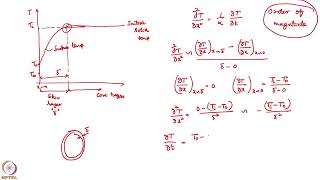 T
Ti
T∞
T0
Initial
Solid
temp
Surface temp
δ
Skin
layer
"δ"
Core region
δ
∂²T/∂x² = 1/α ∂T/∂t
Order of
magnitude
∂²T/∂x² ∼ ((∂T/∂x)x=δ − (∂T/∂x)x=0)/(δ−0)
(∂T/∂x)x=δ = 0 (∂T/∂x)x=0 = (Ti−T0)/δ
∂²T/∂x² ∼ (0−(Ti−T0))/δ² ∼ −(Ti−T0)/δ²
∂T/∂t = T0 −
NPTEL